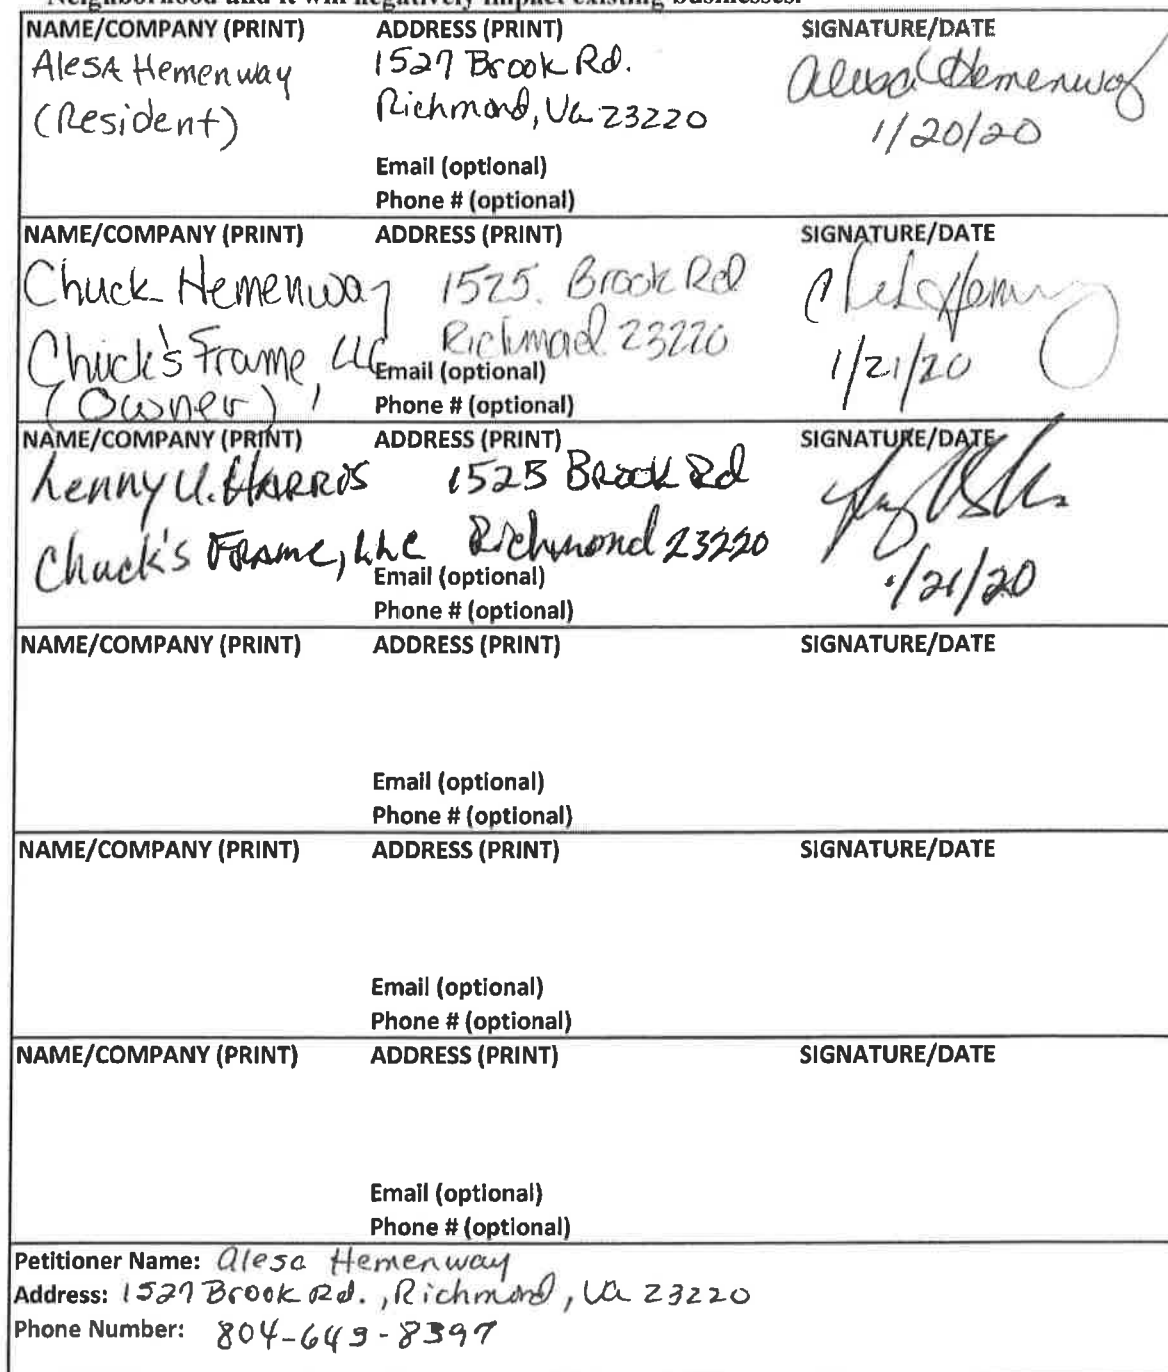 Neighborhood and it will negatively impact existing businesses.
NAME/COMPANY (PRINT) ADDRESS (PRINT) SIGNATURE/DATE
AlesA Hemenway 1527 Brook Rd. Alesa Hemenway
(Resident) Richmond, Va 23220 1/20/20
Email (optional)
Phone # (optional)
NAME/COMPANY (PRINT) ADDRESS (PRINT) SIGNATURE/DATE
Chuck Hemenway 1525 Brook Rd
Chuck's Frame, LLC Richmond 23220 1/21/20
Email (optional)
(Owner) Phone # (optional)
NAME/COMPANY (PRINT) ADDRESS (PRINT) SIGNATURE/DATE
Lenny U. HARRIS 1525 Brook Rd
Chuck's FRAME, LLC Richmond 23220 1/21/20
Email (optional)
Phone # (optional)
NAME/COMPANY (PRINT) ADDRESS (PRINT) SIGNATURE/DATE
Email (optional)
Phone # (optional)
NAME/COMPANY (PRINT) ADDRESS (PRINT) SIGNATURE/DATE
Email (optional)
Phone # (optional)
NAME/COMPANY (PRINT) ADDRESS (PRINT) SIGNATURE/DATE
Email (optional)
Phone # (optional)
Petitioner Name: Alesa Hemenway
Address: 1527 Brook Rd., Richmond, Va 23220
Phone Number: 804-649-8397